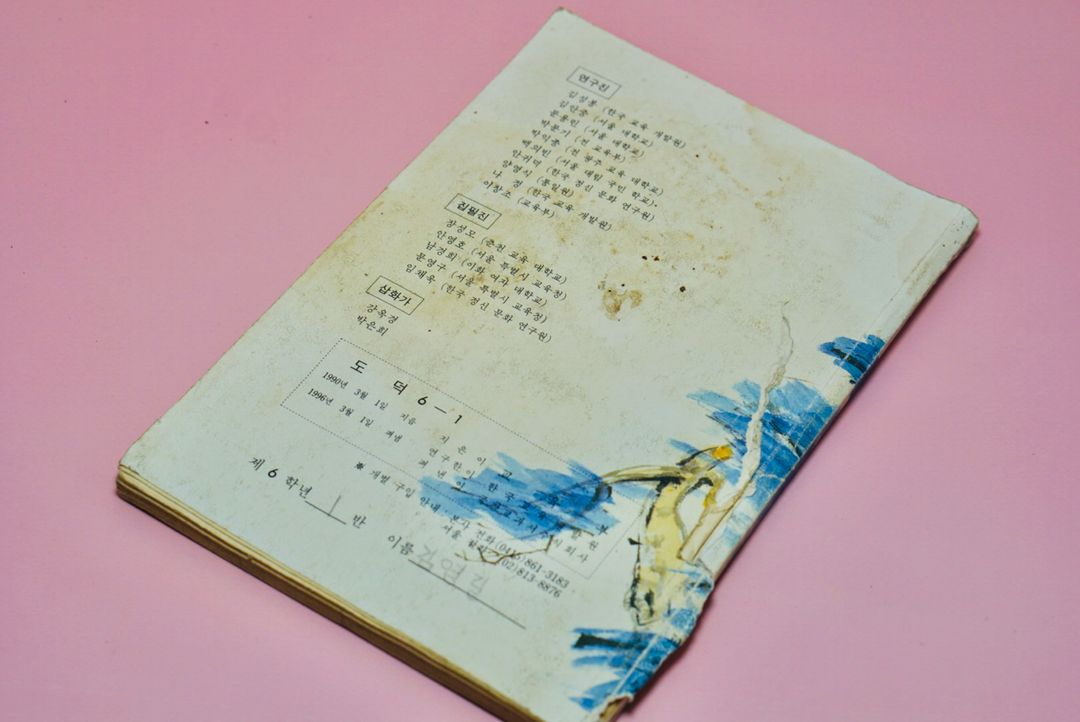 연구진
김상봉 (한국 교육 개발원)
김안중 (서울 대학교)
문용린 (서울 대학교)
박문기 (전 교육부)
박익종 (전 광주 교육 대학교)
배의빈 (서울 대림 국민 학교)
안귀덕 (한국 정신 문화 연구원)
양영식 (통일원)
나 정 (한국 교육 개발원)
이창조 (교육부)
집필진
장성모 (춘천 교육 대학교)
안영호 (서울 특별시 교육청)
남경희 (이화 여자 대학교)
윤영구 (서울 특별시 교육청)
임채욱 (한국 정신 문화 연구원)
삽화가
강옥경
박은희
도 덕 6 — 1
1990년 3월 1일 지음 지 은 이 교 부
1996년 3월 1일 펴냄 연구한이 한국교
펴 낸 이 국정교과서주식회사
※ 개별 구입 안내 본사 전화 861-3183
서울 (02)813-8876
제 6 학년 1 반
이름